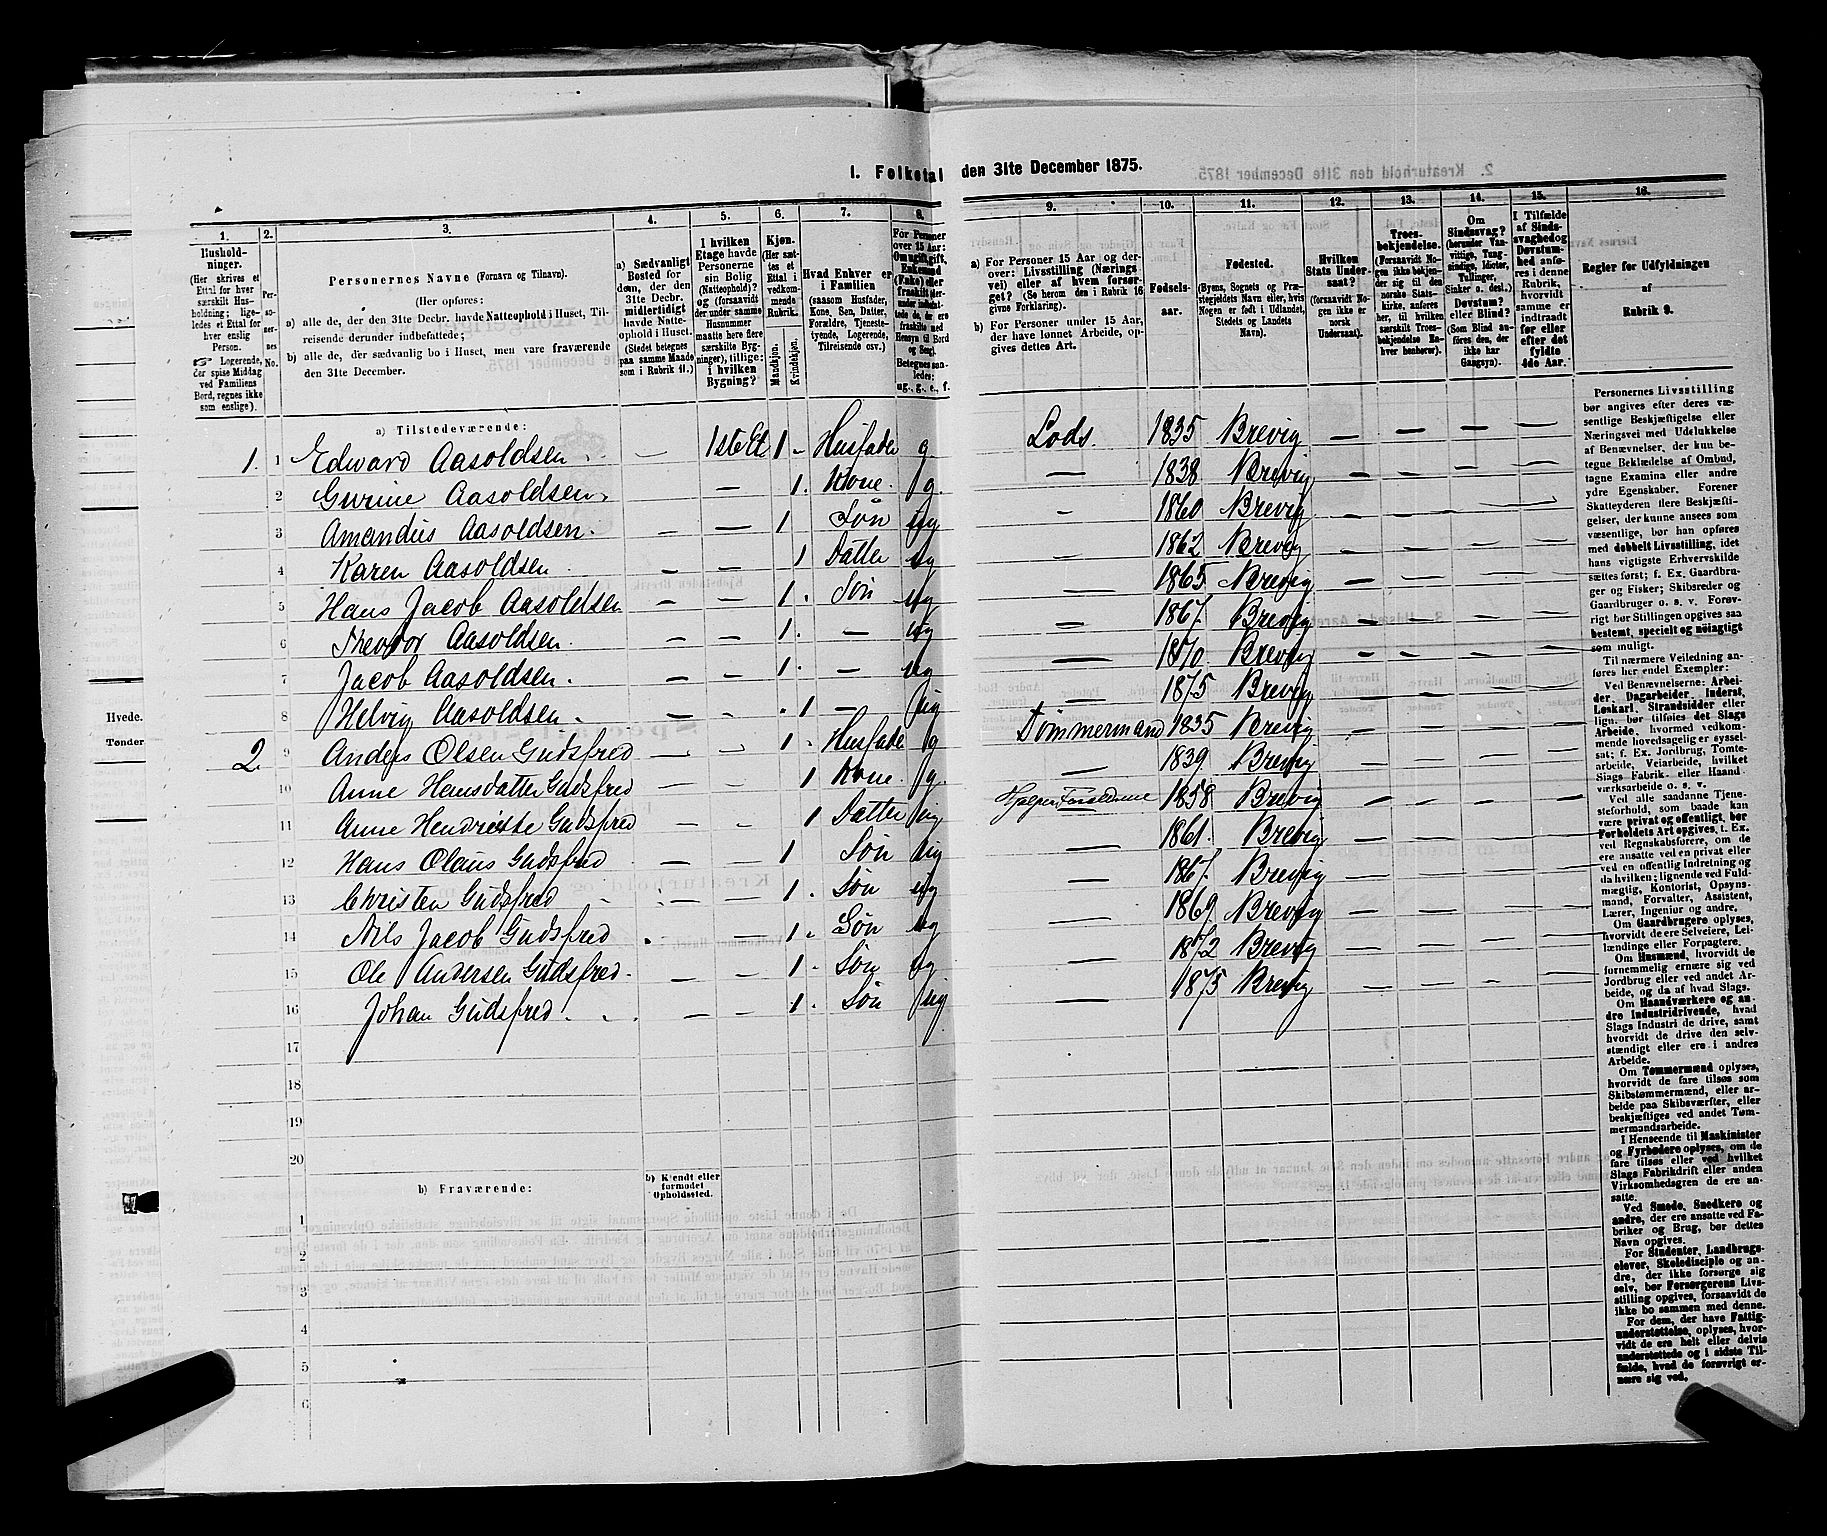 1. Folketal den 31te December 1875.
1. 2. 3. 4. 5. 6. 7. 8. 9. 10. 11. 12. 13. 14. 15. 16.
Husholdninger.
(Her skrives et
Ettal for hver
særskilt Husholdning; ligeledes
et Ettal for
enslig
Person.
Logerende,
der spise Middag
ved Familiens
Bord, regnes ikke
som enslige).
Personernes No.
Personernes Navne (Fornavn og Tilnavn).
(Her opføres:
a) alle de, der den 31te Decbr. havde Natteophold i Huset, Tilreisende
derunder indbefattede;
b) alle de, der sædvanlig bo i Huset, men vare fraværende
den 31te December.
a) Sædvanligt
Bosted for
dem, der den
31te Decbr.
midlertidigt
havde Natteophold
i Huset.
(Stedet betegnes
paa samme Maade
som i Rubrik 11.)
I hvilken
Etage havde
Personerne
sin Bolig
(Natteophold)?
og (forsaavidt
der under samme
Husnummer
maatte høre flere
særskilte Bygninger),
tillige:
i hvilken
Bygning?
Kjøn.
(Her sættes
et
Ettal i
vedkommende
Rubrik.
Mandkjøn.
Kvindekjøn.
Hvad Enhver er
i Familien
(saasom Husfader,
Kone, Søn, Datter,
Forældre, Tjenestetyende,
Logerende,
Tilreisende osv.)
a) For Personer 15 Aar og derover:
Livsstilling (Næringsvei)
eller af hvem forsørget?
(Se herom den i Rubrik 16
givne Forklaring).
b) For Personer under 15 Aar,
der have lønnet Arbeide, opgives
dettes Art.
Fødselsaar.
Fødested.
(Byens, Sognets og Præstegjeldets
Navn eller, hvis
Nogen er født i Udlandet,
Stedets og Landets
Navn).
Hvilken
Stats Undersaat?
(forsaavidt Nogen
ikke er
norsk
Undersaat).
Troesbekjendelse.
(Forsaavidt Nogen
ikke bekjender
sig til den
norske Statskirke,
anføres
her, til hvilken
særskilt Troesbekjendelse
Enhver
henhører).
Om
Sindssvag?
(herunder Vanvittige,
Tungsindige,
Idioter,
Tullinger,
Sinker o. desl.)
Døvstum?
eller Blind?
(Som Blind anføres
den, der
ikke har
Gangsyn).
I Tilfælde
af Sindssvaghed
og
Døvstumhed
anføres
i denne
Rubrik,
hvorvidt
samme er
indtraadt
før eller
efter det
fyldte
4de Aar.
Regler for Udfyldningen
af
Rubrik 9.
a) Tilstedeværende:
1. 1 Edward Aasoldsen — 1ste Et 1 - Husfader g Lods. 1835 Brevig
2 Gurine Aasoldsen — 1. Kone. g. — 1838 Brevig
3 Amandus Aasoldsen. — — 1 Søn ug - 1860 Brevig
4 Karen Aasoldsen. — — 1 Datter ug — 1862 Brevig
5 Hans Jacob Aasoldsen — — 1. Søn ug — 1865 Brevig
6 Theodor Aasoldsen. — — 1. — ug — 1867. Brevig
7 Jacob Aasoldsen. — — 1. — ug — 1870. Brevig
8 Helvig Aasoldsen. — — 1 — ug — 1875 Brevig
2. 9 Anders Olsen Gudsfred — 1. Husfader g Tømmermand 1835 Brevig
10 Anne Hansdatter Gudsfred 1 Kone. g. — 1839 Brevig
11 Anne Hendrikke Gudsfred — 1 Datter ug Hjelper Forældrene 1858 Brevig
12 Hans Olaus Gudsfred — — 1 Søn ug — 1861. Brevig
13 Christen Gudsfred — — 1. Søn ug — 1867. Brevig
14 Nils Jacob Gudsfred — 1. Søn ug — 1869. Brevig
15 Ole Andersen Gudsfred. — — 1. Søn ug — 1872 Brevig
16 Johan Gudsfred. — — 1. Søn ug — 1875 Brevig
17
18
19
20
b) Fraværende:
b) Kjendt eller
formodet
Opholdssted.
1
2
3
4
5
6
Personernes Livsstilling
bør angives efter deres væsentlige
Beskjæftigelse eller
Næringsvei med Udelukkelse
af Benævnelser, der kun betegne
Beklædelse af Ombud,
tagne Examina eller andre
ydre Egenskaber. Forener
Skatteyderen flere Beskjæftigelser,
der kunne ansees som
væsentlige, bør han opføres
med dobbelt Livsstilling, idet
hans vigtigste Erhvervskilde
sættes først; f. Ex. Gaardbruger
og Fisker; Skibsreder og
Gaardbruger o. s. v. Forøvrigt
bør Stillingen opgives saa
bestemt, specielt og nøiagtigt
som muligt.
Til nærmere Veiledning anføres
her endel Exempler:
Ved Benævnelserne: Arbeider,
Dagarbeider, Inderst,
Løskarl, Strandsidder eller
lign. bør tilføies det Slags
Arbeide, hvormed vedkommende
hovedsagelig er sysselsat;
f. Ex. Jordbrug, Tomtearbeide,
Veiarbeide, hvilket
Slags Fabrik- eller Haandværksarbeide
o. s. v.
Ved alle saadanne Tjenesteforhold,
som baade kan
være privat og offentligt, bør
Forholdets Art opgives, t. Ex.
ved Regnskabsførere, om de
ere ansatte ved en privat eller
ved en offentlig Indretning og
da hvilken; lignende ved Fuldmægtig,
Kontorist, Opsynsmand,
Forvalter, Assistent,
Lærer, Ingeniør og andre.
Om Gaardbrugere oplyses,
hvorvidt de ere Selveiere, Leilændinge
eller Forpagtere.
Om Husmænd, hvorvidt de
fornemmelig ernære sig ved
Jordbrug eller ved andet Arbeide,
og da af hvad Slags.
Om Haandværkere og andre
Industridrivende, hvad
Slags Industri de drive, samt
hvorvidt de drive den selvstændigt
eller ere i andres
Arbeide.
Om Tømmermænd oplyses,
hvorvidt de fare tilsøs som
Skibstømmermænd, eller arbeide
paa Skibsværfter, eller
beskjæftiges ved andet Tømmermandsarbeide.
I Henseende til Maskinister
og Fyrbødere oplyses, om de
fare tilsøs eller ved hvilket
Slags Fabrikdrift eller anden
Virksomhedsgren de ere ansatte.
Ved Smede, Snedkere og
andre, der ere ansatte ved Fabriker
og Brug, bør dettes
Navn opgives.
For Studenter, Landbrugselever,
Skoledisciple og andre,
der ikke forsørge sig
selv, bør Forsørgerens Livsstilling
opgives, forsaavidt de
ikke bo sammen med denne.
For dem, der have Fattigunderstøttelse,
oplyses, hvorvidt
de ere helt eller delvis
understøttede og i sidste Tilfælde,
hvad de forøvrigt ernære
sig ved.
Hvede.
Tønder